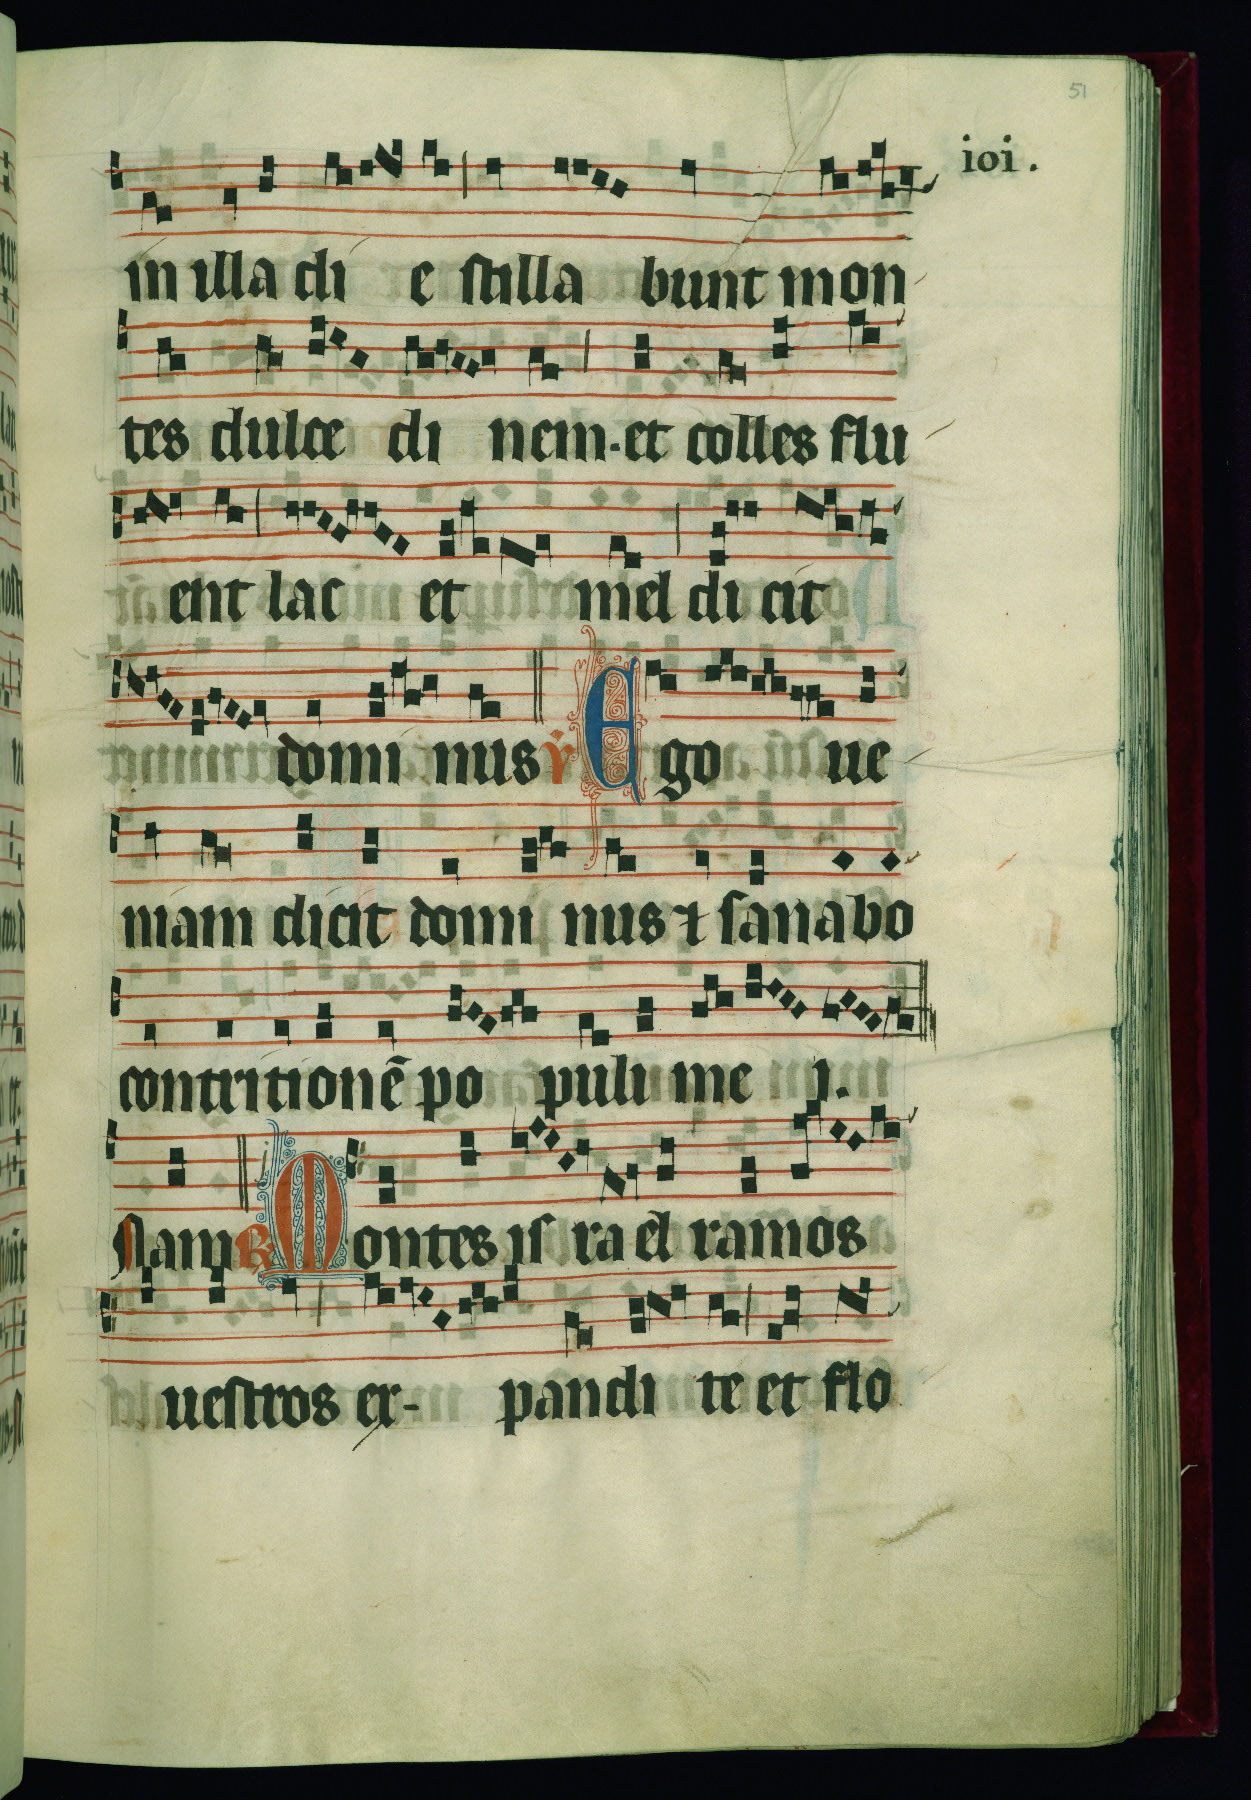 51
ioi.
in illa di e stilla bunt mon
tes dulce di nem. et colles flu
ent lac et mel di cit
domi nus ℣ E go ue
niam dicit domi nus ⁊ sanabo
contritionē po puli me j.
Nam ℟ Montes is ra el ramos
uestros ex- pandi te et flo